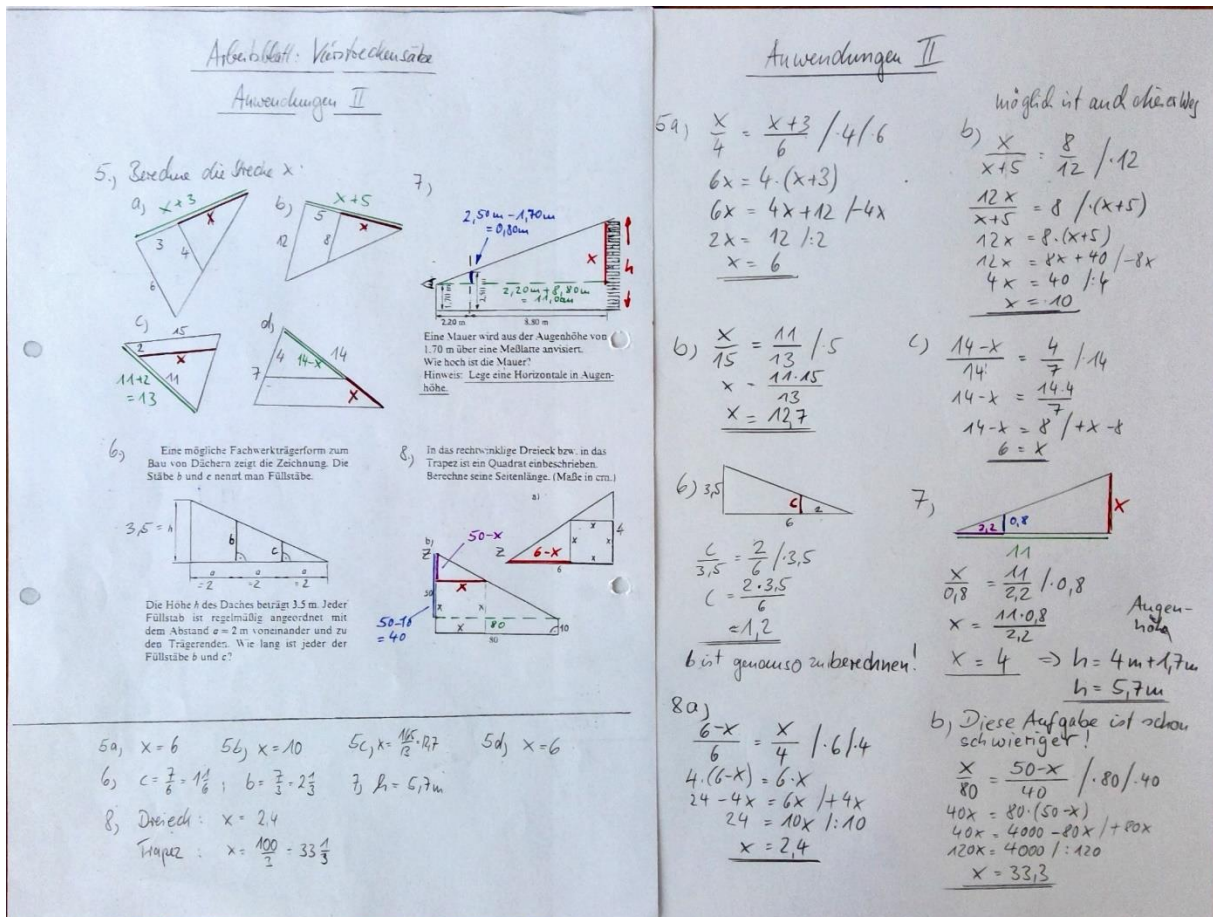 Arbeitsblatt: Vierstreckensätze
Anwendungen II
5., Berechne die Strecke x.
a,
x+3
x
3
4
6
b,
x+5
5
x
12
8
c,
15
2
x
11
11+2
= 13
d,
4
14-x
14
7
x
7,
2,50m - 1,70m
= 0,80m
x
h
1,70 m
2,20m + 8,80m
= 11,0m
2.20 m
8.80 m
Eine Mauer wird aus der Augenhöhe von
1.70 m über eine Meßlatte anvisiert.
Wie hoch ist die Mauer?
Hinweis: Lege eine Horizontale in Augen-
höhe.
6,
Eine mögliche Fachwerkträgerform zum
Bau von Dächern zeigt die Zeichnung. Die
Stäbe b und c nennt man Füllstäbe.
3,5 = h
b
c
a
a
a
=2
=2
=2
Die Höhe h des Daches beträgt 3.5 m. Jeder
Füllstab ist regelmäßig angeordnet mit
dem Abstand a = 2 m voneinander und zu
den Trägerenden. Wie lang ist jeder der
Füllstäbe b und c?
8.,
In das rechtwinklige Dreieck bzw. in das
Trapez ist ein Quadrat einbeschrieben.
Berechne seine Seitenlänge. (Maße in cm.)
a)
x
x
x
x
4
Z
6-x
6
b)
Z
50-x
x
50
x
x
50-10
= 40
80
x
10
80
5a, x = 6 5b, x = 10 5c, x = 165/13 = 12,7 5d, x = 6
6, c = 7/6 = 1 1/6 ; b = 7/3 = 2 1/3 7, h = 5,7m
8, Dreieck: x = 2,4
Trapez: x = 100/3 = 33 1/3
Anwendungen II
5a, x/4 = (x+3)/6 /·4/·6
6x = 4·(x+3)
6x = 4x+12 /-4x
2x = 12 /:2
x = 6
möglich ist auch dieser Weg
b) x/(x+5) = 8/12 /·12
12x/(x+5) = 8 /·(x+5)
12x = 8·(x+5)
12x = 8x + 40 /-8x
4x = 40 /:4
x = 10
b) x/15 = 11/13 /·5
x = 11·15/13
x = 12,7
c) (14-x)/14 = 4/7 /·14
14-x = 14·4/7
14-x = 8 /+x -8
6 = x
6) 3,5
c
a
6
c/3,5 = 2/6 /·3,5
c = 2·3,5/6
= 1,2
b ist genauso zu berechnen!
7,
2,2
0,8
x
11
x/0,8 = 11/2,2 /·0,8
x = 11·0,8/2,2
Augen-
höhe
x = 4 => h = 4m+1,7m
h = 5,7m
8a,
(6-x)/6 = x/4 /·6/·4
4·(6-x) = 6·x
24 - 4x = 6x /+4x
24 = 10x /:10
x = 2,4
b, Diese Aufgabe ist schon
schwieriger!
x/80 = (50-x)/40 /·80/·40
40x = 80·(50-x)
40x = 4000 - 80x /+80x
120x = 4000 /:120
x = 33,3